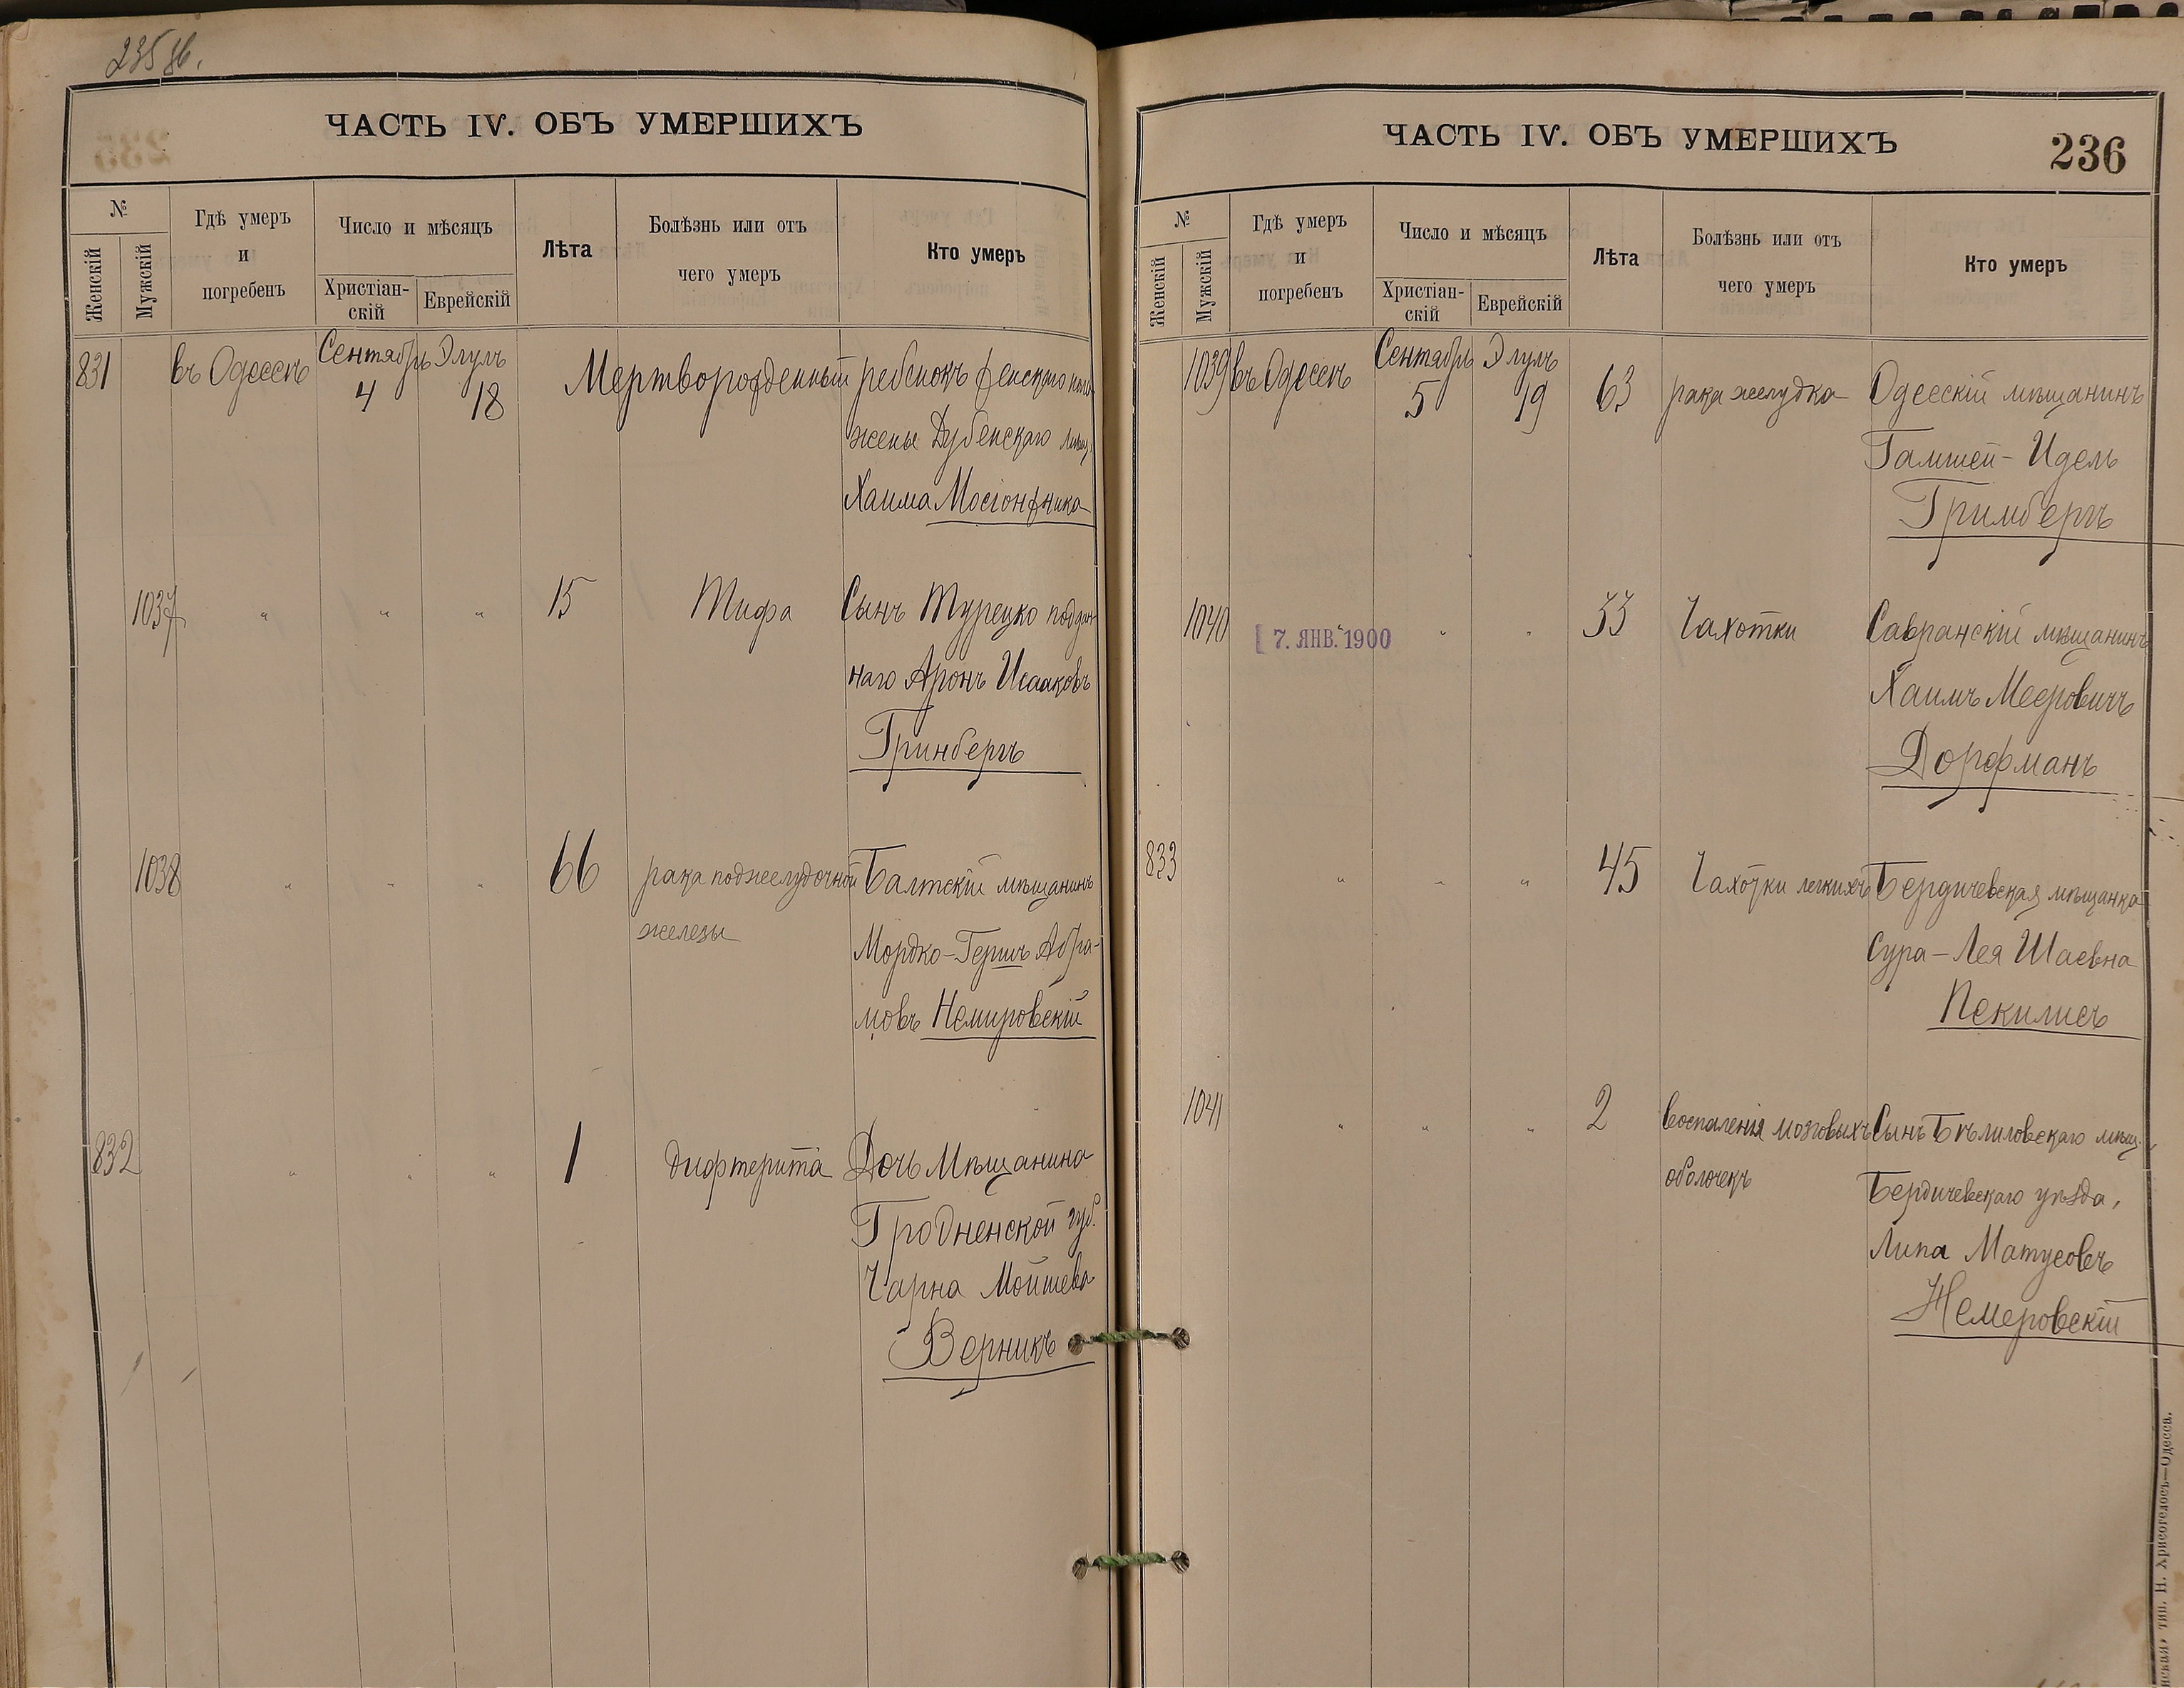 235 об.
ЧАСТЬ IV. ОБЪ УМЕРШИХЪ
№
Женскій
Мужскій
Гдѣ умеръ
и
погребенъ
Число и мѣсяцъ
Христіан-
скій
Еврейскій
Лѣта
Болѣзнь или отъ
чего умеръ
Кто умеръ
831 въ Одессѣ Сентябрь 4 Элулъ 18 Мертворожденный ребенокъ женскаго пола
жены Дубенскаго мѣщ.
Хаима Мосіонжника
1037 " " " 15 Тифа Сынъ Турецко поддан
наго Аронъ Исааковъ
Гринбергъ
1038 " " " 66 рака поджелудочной Балтскій мѣщанинъ
железы Мордко-Гершъ Абра-
мовъ Немировскій
832 " " " 1 дифтерита Дочь Мѣщанина
Гродненской губ.
Чарна Мойшева
Верникъ
ЧАСТЬ IV. ОБЪ УМЕРШИХЪ
236
№
Женскій
Мужскій
Гдѣ умеръ
и
погребенъ
Число и мѣсяцъ
Христіан-
скій
Еврейскій
Лѣта
Болѣзнь или отъ
чего умеръ
Кто умеръ
1039 въ Одессѣ Сентябрь 5 Элулъ 19 63 рака желудка Одесскій мѣщанинъ
Гамшей-Идель
Гримбергъ
1040 " " " 33 Чахотки Савранскій мѣщанинъ
7. ЯНВ. 1900
Хаимъ Мееровичъ
Дорфманъ
833 " " " 45 Чахотки легкихъ Бердичевская мѣщанка
Сура-Лея Шаевна
Пекилисъ
1041 " " " 2 воспаленія мозговыхъ Сынъ Бѣлиловскаго мѣщ.
оболочекъ Бердичевскаго уѣзда,
Липа Матусовъ
Немеровскій
тип. Н. Хрисогелосъ—Одесса.